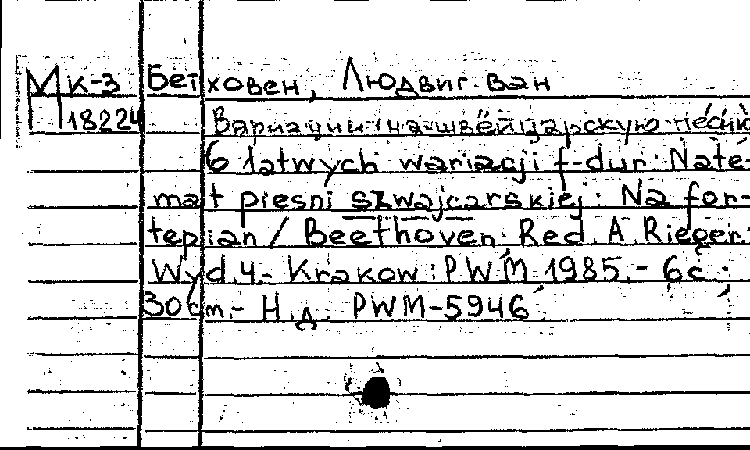 Мк-3 Бетховен, Людвиг ван
18224 Вариации на швейцарскую песню
6 łatwych wariacji f-dur. Na te-
mat piesni szwajcarskiej. Na for-
tepian / Beethoven. Red. A. Rieger.
Wyd. 4.- Krakow: PWM 1985.- 6c.;
30cm.- Н.д. PWM-5946